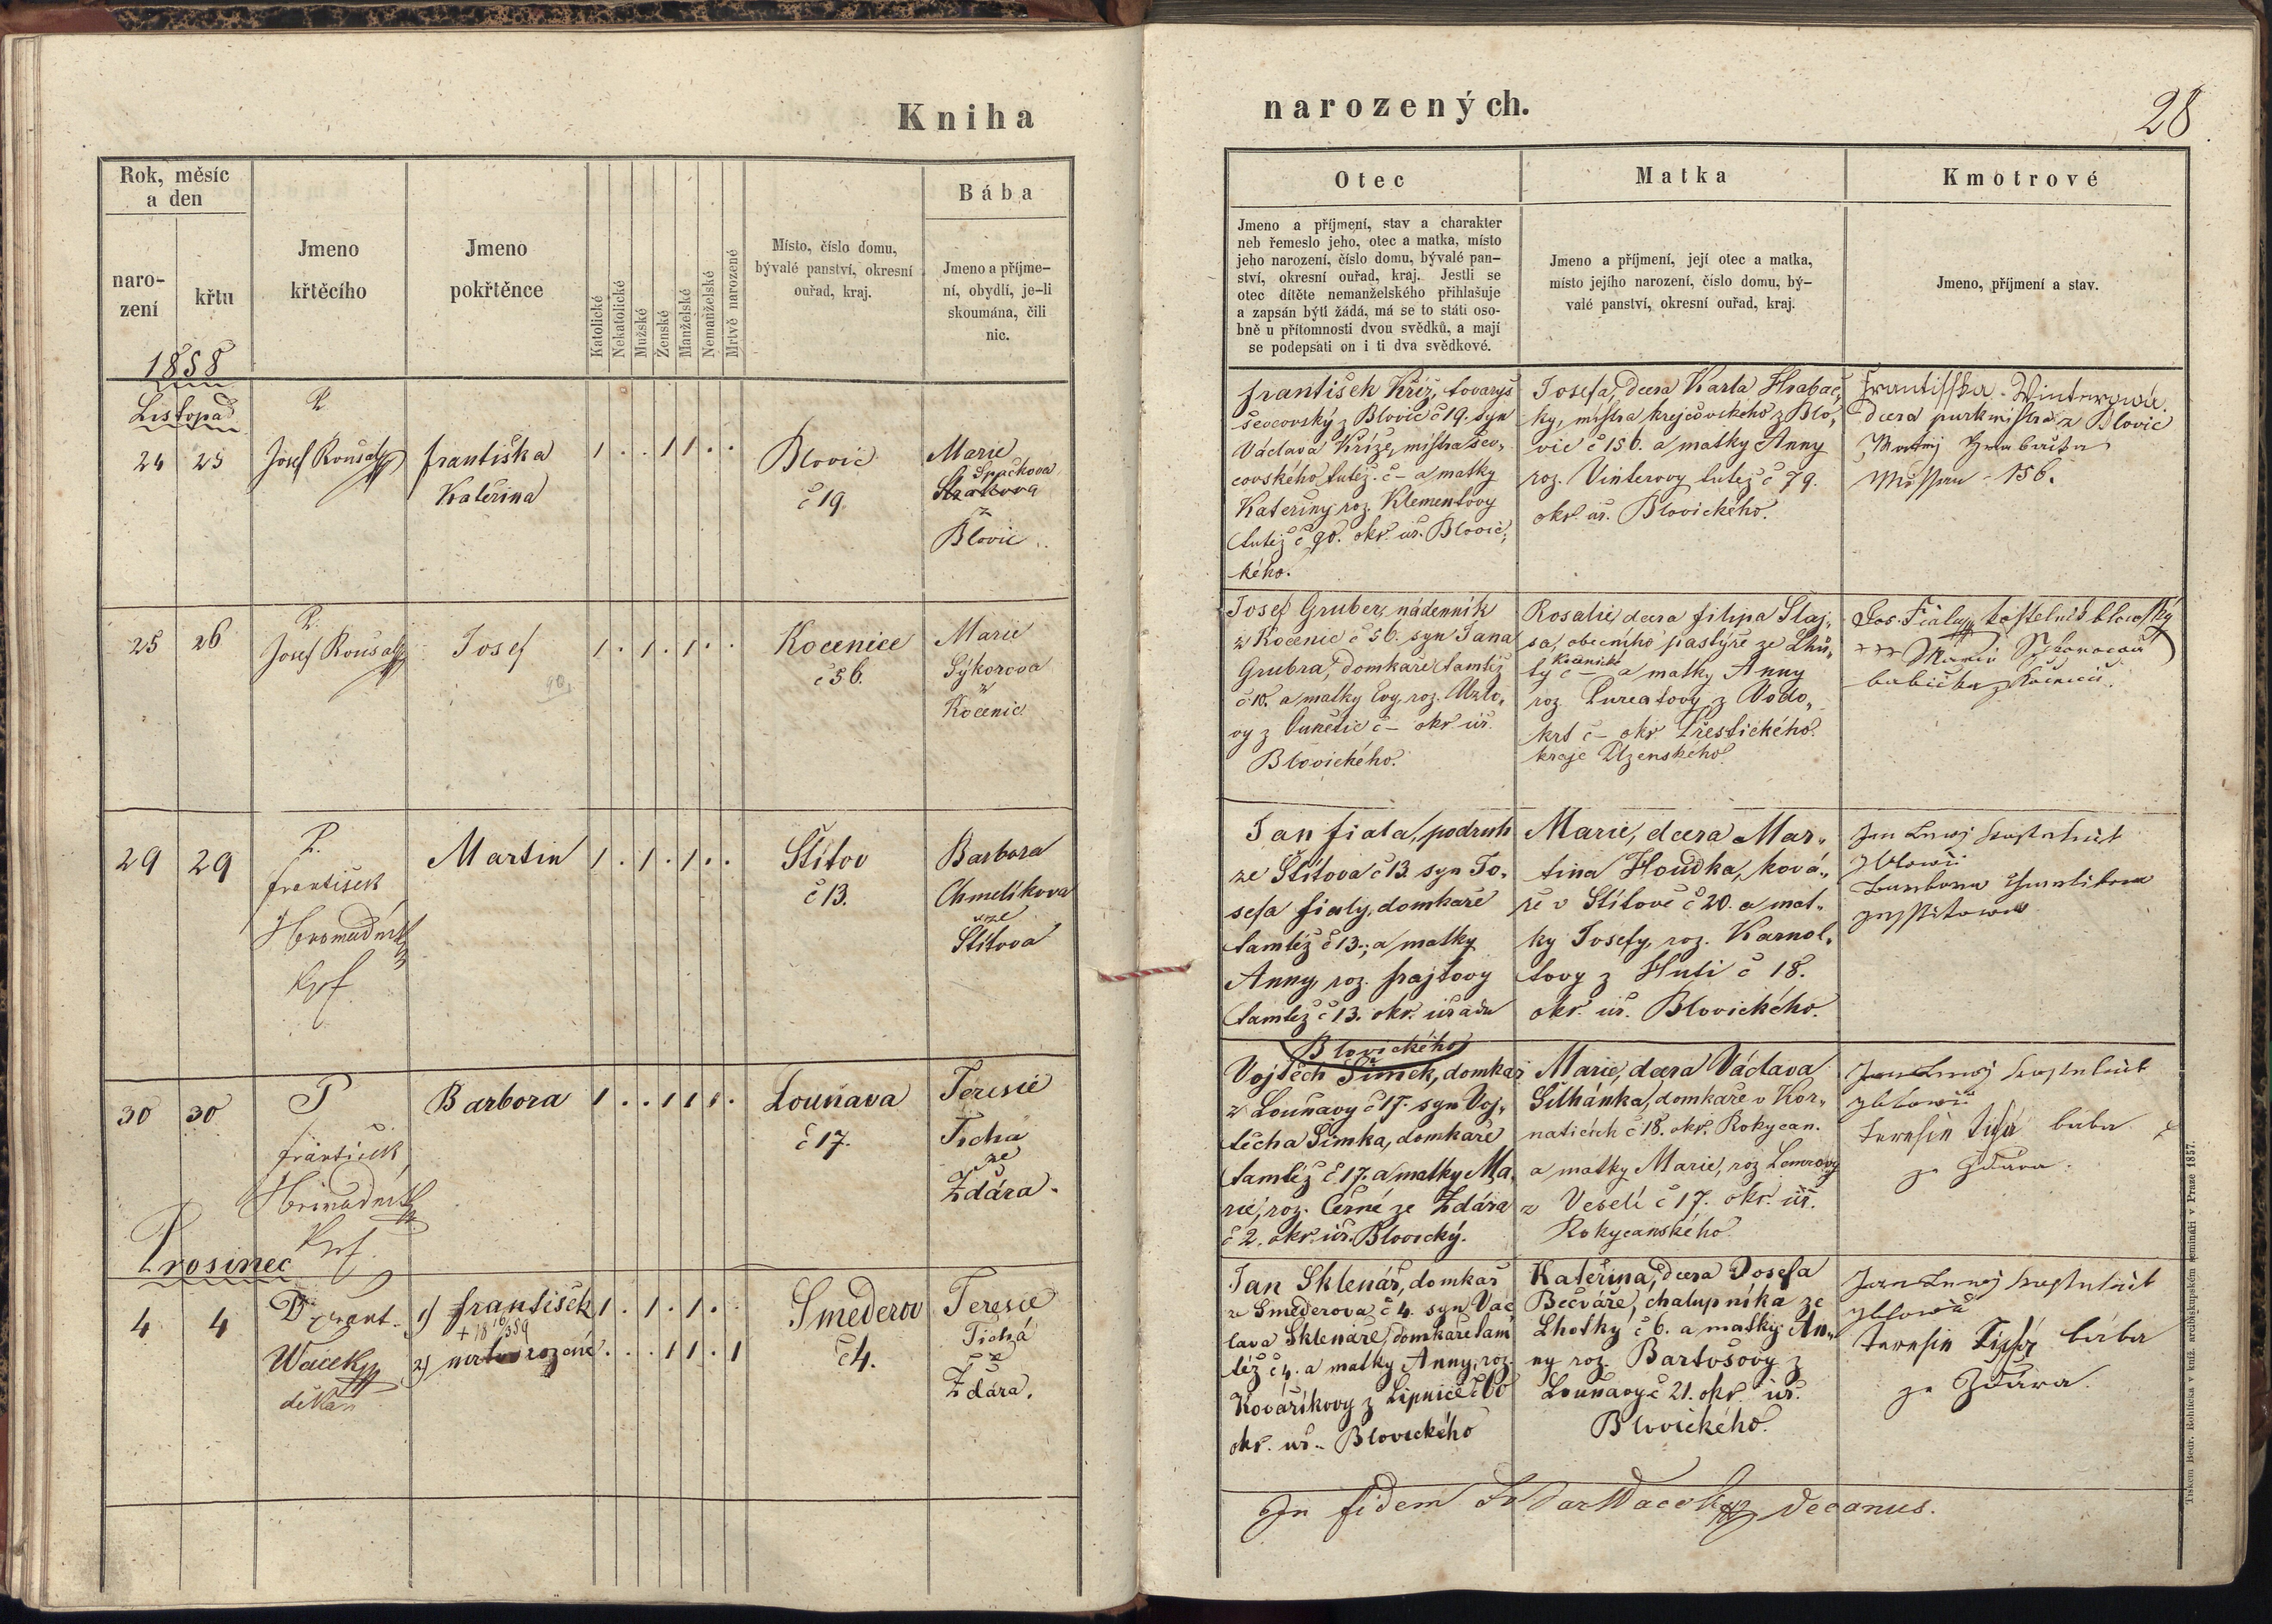 Kniha
narozených.
28
Rok, měsíc
a den
naro-
zení
křtu
Jmeno
křtěcího
Jmeno
pokřtěnce
Katolické
Nekatolické
Mužské
Ženské
Manželské
Nemanželské
Mrtvě narozené
Místo, číslo domu,
bývalé panství, okresní
ouřad, kraj.
Bába
Jmeno a příjme-
ní, obydlí, je-li
skoumána, čili
nic.
Otec
Jmeno a příjmení, stav a charakter
neb řemeslo jeho, otec a matka, místo
jeho narození, číslo domu, bývalé pan-
ství, okresní ouřad, kraj. Jestli se
otec dítěte nemanželského přihlašuje
a zapsán býti žádá, má se to státi oso-
bně u přítomnosti dvou svědků, a mají
se podepsati on i ti dva svědkové.
Matka
Jmeno a příjmení, její otec a matka,
místo jejího narození, číslo domu, bý-
valé panství, okresní ouřad, kraj.
Kmotrové
Jmeno, příjmení a stav.
1858
Listopad
24 25
P.
Josef Roušal
Františka
Kateřina
1 . . 1 1 . .
Blovic
č 19
Marie
Spačkova
z
Blovic
František Kříž, tovaryš
ševcovský z Blovic č 19. syn
Václava Kříže, mistra šev„
covského tutéž. č – a matky
Kateřiny roz. Klementovy
tutéž č 90. okr. úř. Blovic„
kého.
Josefa, dcera Karla Hrabač„
ky, mistra krejčovského z Blo„
vic č 156. a matky Anny
roz. Vinterovy tutéž č 79.
okr. úř. Blovického.
Frantisska Winterowá
dcera purkmistra z Blovic
156.
25 26
P.
Josef Roušal
Josef
1 . 1 . 1 . .
Kocenice
č 56.
Marie
Sýkorova
z
Kocenic
Josef Gruber, nádenník
z Kocenic č 56. syn Jana
Grubra, domkáře tamtéž
č 10. a matky Evy, roz. Uzlo„
vy z Cunětic č – okr úř.
Blovického.
Rosalie, dcera Filipa Slaj„
sa, obecního pastýře ze Lhů„
ty Kocenické č – a matky Anny
roz. z Vodo„
krt č – okr Přestického
kraje Plzenského
Jos. Fiala kostelník blowský
+++ Marie Sykorová
babička z Kocenic
29 29
P.
František
Hromadník
Kpl
Martin
1 . 1 . 1 . .
Štítov
č 13.
Barbora
Chmelíkova
ze
Štítova
Jan Fiala, podruh
ze Štítova č 13. syn Jo„
sefa Fialy, domkáře
tamtéž č 13., a matky
Anny, roz. Frajtovy
tamtéž č 13. okr. úřadu
Blovického
Marie, dcera Mar„
tina Houdka, ková„
ře v Štítově č 20. a mat„
ky Josefy, roz. Karnol„
tovy z Huti č 18.
okr. úř. Blovického.
30 30
P
František
Hromadník
Kpl.
Barbora
1 . . 1 1 . .
Louňava
č 17.
Teresie
Tichá
ze
Ždára.
Vojtěch Šimek, domkář
z Louňavy č 17. syn Voj„
těcha Šimka, domkáře
tamtéž č 17. a matky Ma„
rie, roz. Černé ze Ždára
č 2. okr. úř. Blovický.
Marie, dcera Václava
Šilhánka, domkáře v Kor„
naticích č 18. okr. Rokycan.
a matky Marie, roz
z Veselí č 17. okr. úř.
Rokycanského
baba
ze Ždára.
Prosinec
4 4
P Frant.
Wacek
děkan
1) František 1 . 1 . 1 . .
2) mrtvorozené . . . 1 1 . 1
Smederov
č 4.
Teresie
Tichá
ze
Ždára.
Jan Sklenář, domkář
z Smederova č 4. syn Vác
lava Sklenáře, domkáře tam
též č 4. a matky Anny, roz.
Kovaříkovy z Lipnice č
okr. úř. Blovického
Kateřina, dcera Josefa
Bečváře, chalupníka ze
Lhotky č 6. a matky An„
ny roz. Bartošovy z
Louňavy č 21. okr. úř.
Blovického.
bába
ze Ždára.
In fidem Wacek decanus.
Tiskem Bedr. Rohlíčka v kníž. arcibiskupském semináři v Praze 1857.